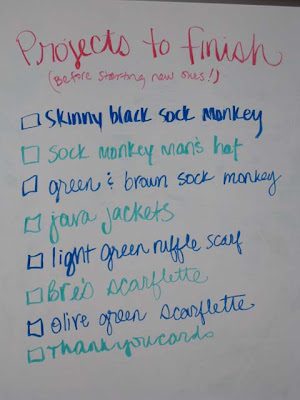 Projects to finish
(Before starting new ones!)
skinny black sock monkey
sock monkey man's hat
green & brown sock monkey
java jackets
light green ruffle scarf
Bre's scarflette
olive green scarflette
Thank you cards